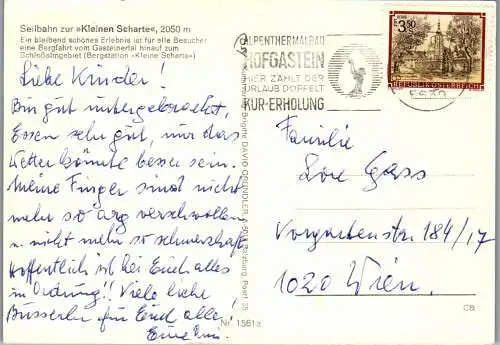 Seilbahn zur »Kleinen Scharte«, 2050 m
Ein bleibend schönes Erlebnis ist für alle Besucher
eine Bergfahrt vom Gasteinertal hinauf zum
Schloßalmgebiet (Bergstation »Kleine Scharte«)
Liebe Kinder!
Bin gut untergebracht,
Essen sehr gut, nur das
Wetter könnte besser sein.
Meine Finger sind nicht
mehr so arg verschwollen
u. nicht mehr so schmerzhaft
Hoffentlich ist bei Euch alles
in Ordnung!! Viele liebe
Busserln für Euch alle!
Eure
ALPENTHERMALBAD
HOFGASTEIN
HIER ZÄHLT DER
URLAUB DOPPELT
KUR-ERHOLUNG
S 3.50
REPUBLIK ÖSTERREICH
5630
Brigitte DAVID-GRÜNDLER, Salzburg, Postf. 25
Nr. 1561a
Familie
Gass
Vorgartenstr. 184/17
1020 Wien
CB